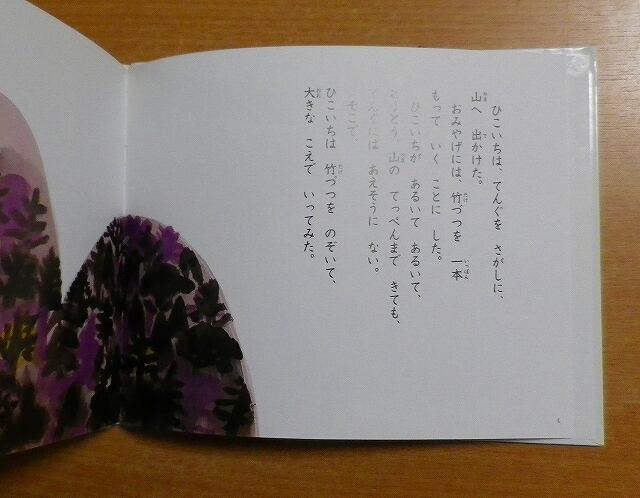 ひこいちは、てんぐを さがしに、
山へ 出かけた。
おみやげには、竹づつを 一本
もって いく ことに した。
ひこいちが あるいて あるいて、
とうとう 山の てっぺんまで きても、
てんぐには あえそうに ない。
そこで、
ひこいちは 竹づつを のぞいて、
大きな こえで いってみた。